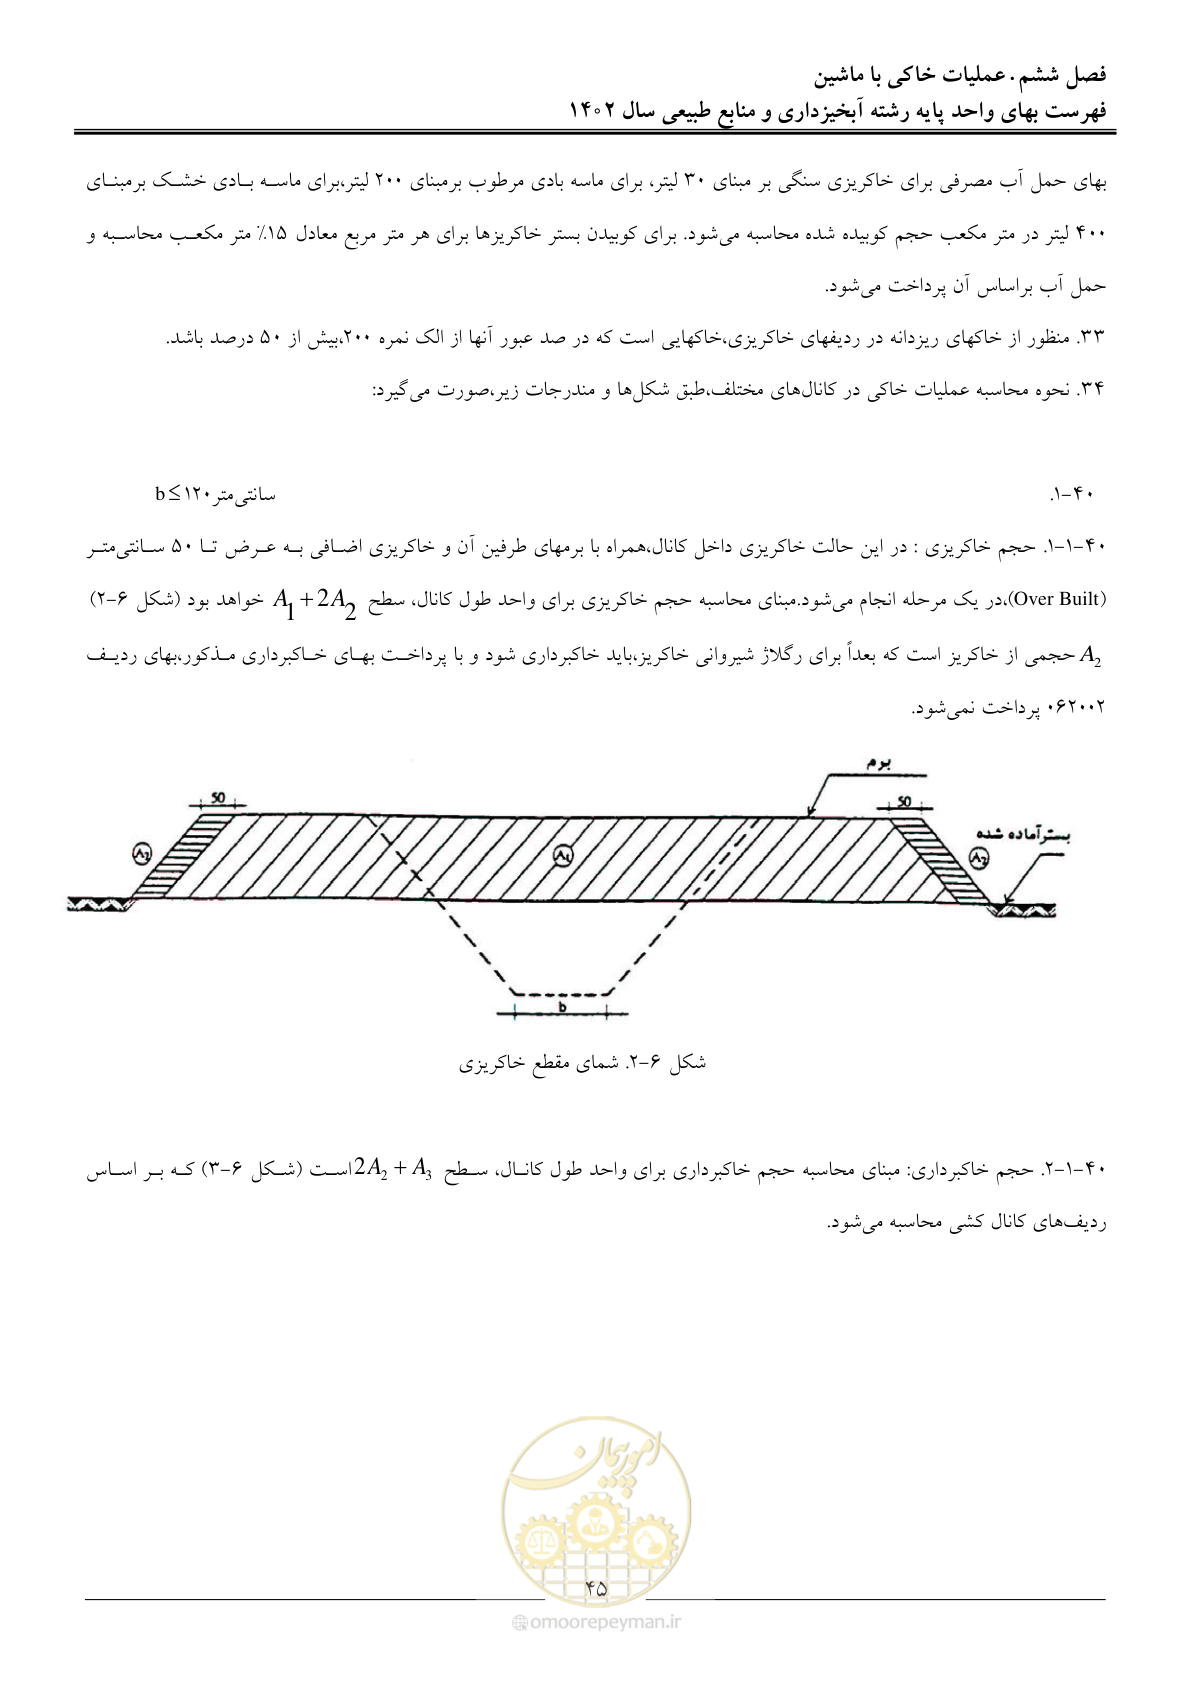 فصل ششم . عملیات خاکی با ماشین
فهرست بهای واحد پایه رشته آبخیزداری و منابع طبیعی سال ۱۴۰۲
بهای حمل آب مصرفی برای خاکریزی سنگی بر مبنای ۳۰ لیتر، برای ماسه بادی مرطوب برمبنای ۲۰۰ لیتر،برای ماسه بادی خشک برمبنای
۴۰۰ لیتر در متر مکعب حجم کوبیده شده محاسبه می‌شود. برای کوبیدن بستر خاکریزها برای هر متر مربع معادل ۱۵٪ متر مکعب محاسبه و
حمل آب براساس آن پرداخت می‌شود.
۳۳. منظور از خاکهای ریزدانه در ردیفهای خاکریزی،خاکهایی است که در صد عبور آنها از الک نمره ۲۰۰،بیش از ۵۰ درصد باشد.
۳۴. نحوه محاسبه عملیات خاکی در کانال‌های مختلف،طبق شکل‌ها و مندرجات زیر،صورت می‌گیرد:
۴۰-۱. b ≤ ۱۲۰ سانتی‌متر
۴۰-۱-۱. حجم خاکریزی : در این حالت خاکریزی داخل کانال،همراه با برمهای طرفین آن و خاکریزی اضافی به عرض تا ۵۰ سانتی‌متر
(Over Built)،در یک مرحله انجام می‌شود.مبنای محاسبه حجم خاکریزی برای واحد طول کانال، سطح A₁ + 2A₂ خواهد بود (شکل ۶-۲)
A₂ حجمی از خاکریز است که بعداً برای رگلاژ شیروانی خاکریز،باید خاکبرداری شود و با پرداخت بهای خاکبرداری مذکور،بهای ردیف
۰۶۲۰۰۲ پرداخت نمی‌شود.
برم
50
50
بستر آماده شده
A2
A1
A2
b
شکل ۶-۲. شمای مقطع خاکریزی
۴۰-۱-۲. حجم خاکبرداری: مبنای محاسبه حجم خاکبرداری برای واحد طول کانال، سطح 2A₂ + A₃ است (شکل ۶-۳) که بر اساس
ردیف‌های کانال کشی محاسبه می‌شود.
امور پیمان
۴۵
omoorepeyman.ir